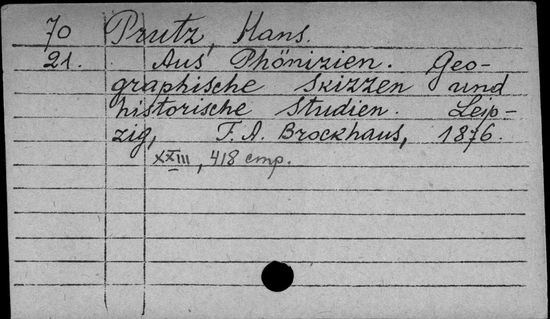 70 Prutz, Hans.
21. Aus Phönizien. Geo-
graphische Skizzen und
historische Studien. Leip-
zig, F. A. Brockhaus, 1876.
XXIII, 418 стр.